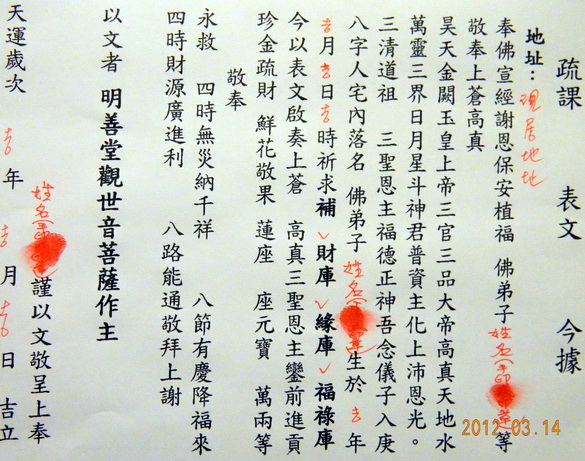 疏課　表文　今據
地址：現居地址
奉佛宣經謝恩保安植福 佛弟子 姓名 等
敬奉上蒼高真
昊天金闕玉皇上帝三官三品大帝高真天地水
萬靈三界日月星斗神君普資主化上沛恩光。
三清道祖　三聖恩主福德正神吾念儀子入庚
八字人宅內落名 佛弟子 姓名 生於 吉 年
吉月吉日吉時祈求補✓財庫✓緣庫✓福祿庫
今以表文啟奏上蒼 高真三聖恩主鑾前進貢
珍金疏財 鮮花敬果 蓮座 座元寶 萬兩等
敬奉
永救 四時無災納千祥 八節有慶降福來
四時財源廣進利 八路能通敬拜上謝
以文者 明善堂觀世音菩薩作主
姓名 謹以文敬呈上奉
天運歲次 吉 年 吉 月 吉 日 吉立
2012·03·14